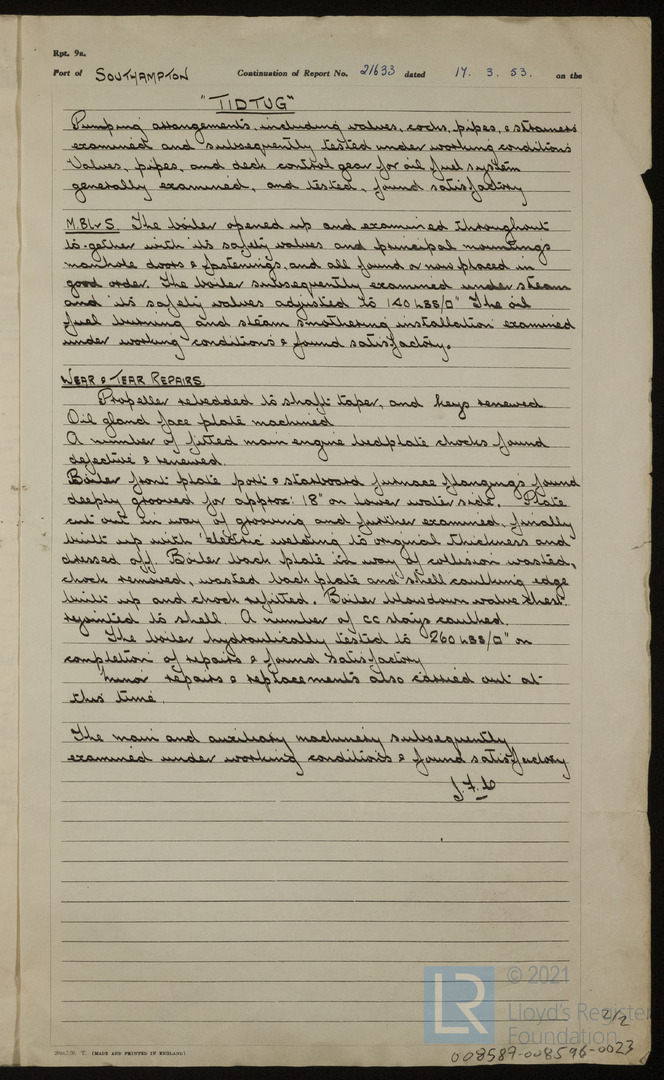 Rpt. 9a.
Port of SOUTHAMPTON Continuation of Report No. 21633 dated 17. 3. 53. on the
"TIDTUG"
Pumping arrangements, including valves, cocks, pipes, & strainers
examined and subsequently tested under working conditions
Valves, pipes, and deck control gear for oil fuel system
generally examined, and tested, found satisfactory
M.BLr S. The boiler opened up and examined throughout
to-gether with its safety valves and principal mountings
manhole doors & fastenings, and all found or now placed in
good order. The boiler subsequently examined under steam
and its safety valves adjusted to 140 LBS/□" The oil
fuel burning and steam smothering installation examined
under working conditions & found satisfactory.
WEAR & TEAR REPAIRS.
Propeller rebedded to shaft taper, and keys renewed
Oil gland face plate machined
A number of fitted main engine bedplate chocks found
defective & renewed.
Boiler front plate port & starboard furnace flangings found
deeply grooved for approx: 18" on lower water side. Plate
cut out in way of grooving and further examined, finally
built up with electric welding to original thickness and
dressed off. Boiler back plate in way of collision wasted,
chock removed, wasted back plate and shell caulking edge
built up and chock refitted. Boiler blowdown valve chest
rejointed to shell. A number of CC stays caulked.
The boiler hydraulically tested to 260 LBS/□" on
completion of repairs & found satisfactory
Minor repairs & replacements also carried out at
this time.
The main and auxiliary machinery subsequently
examined under working conditions & found satisfactory
(MADE AND PRINTED IN ENGLAND)
LR © 2021
Lloyd's Register
Foundation
2/2
008589-008596-0023